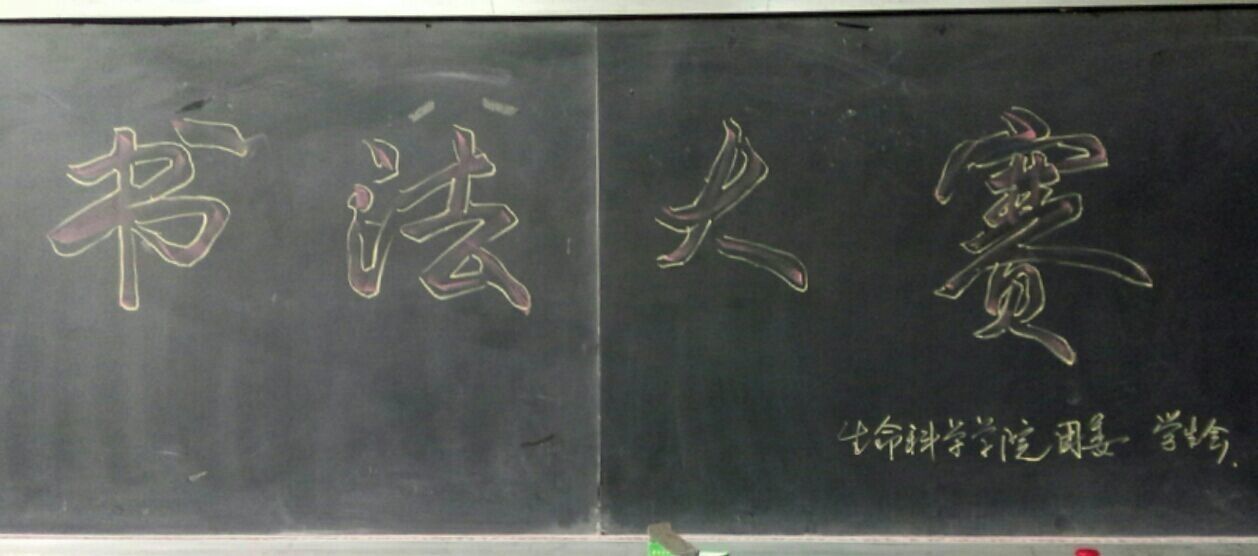 书法大赛
生命科学学院团委 学生会